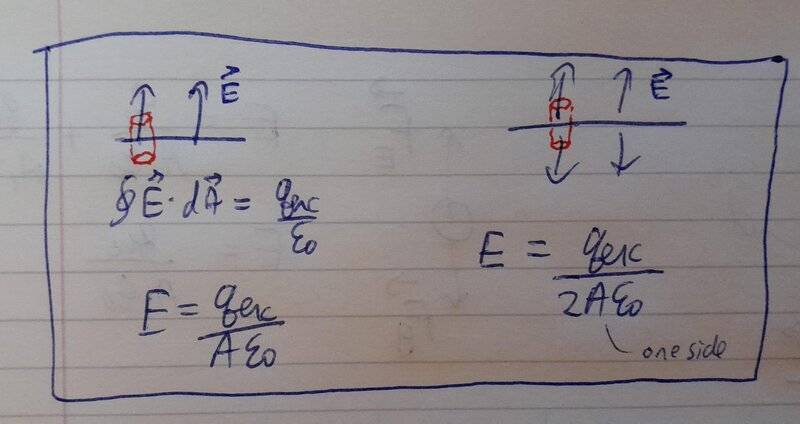 E⃗
∮E⃗·dA⃗ = qenc/ε0
E = qenc/Aε0
E⃗
E = qenc/2Aε0
one side